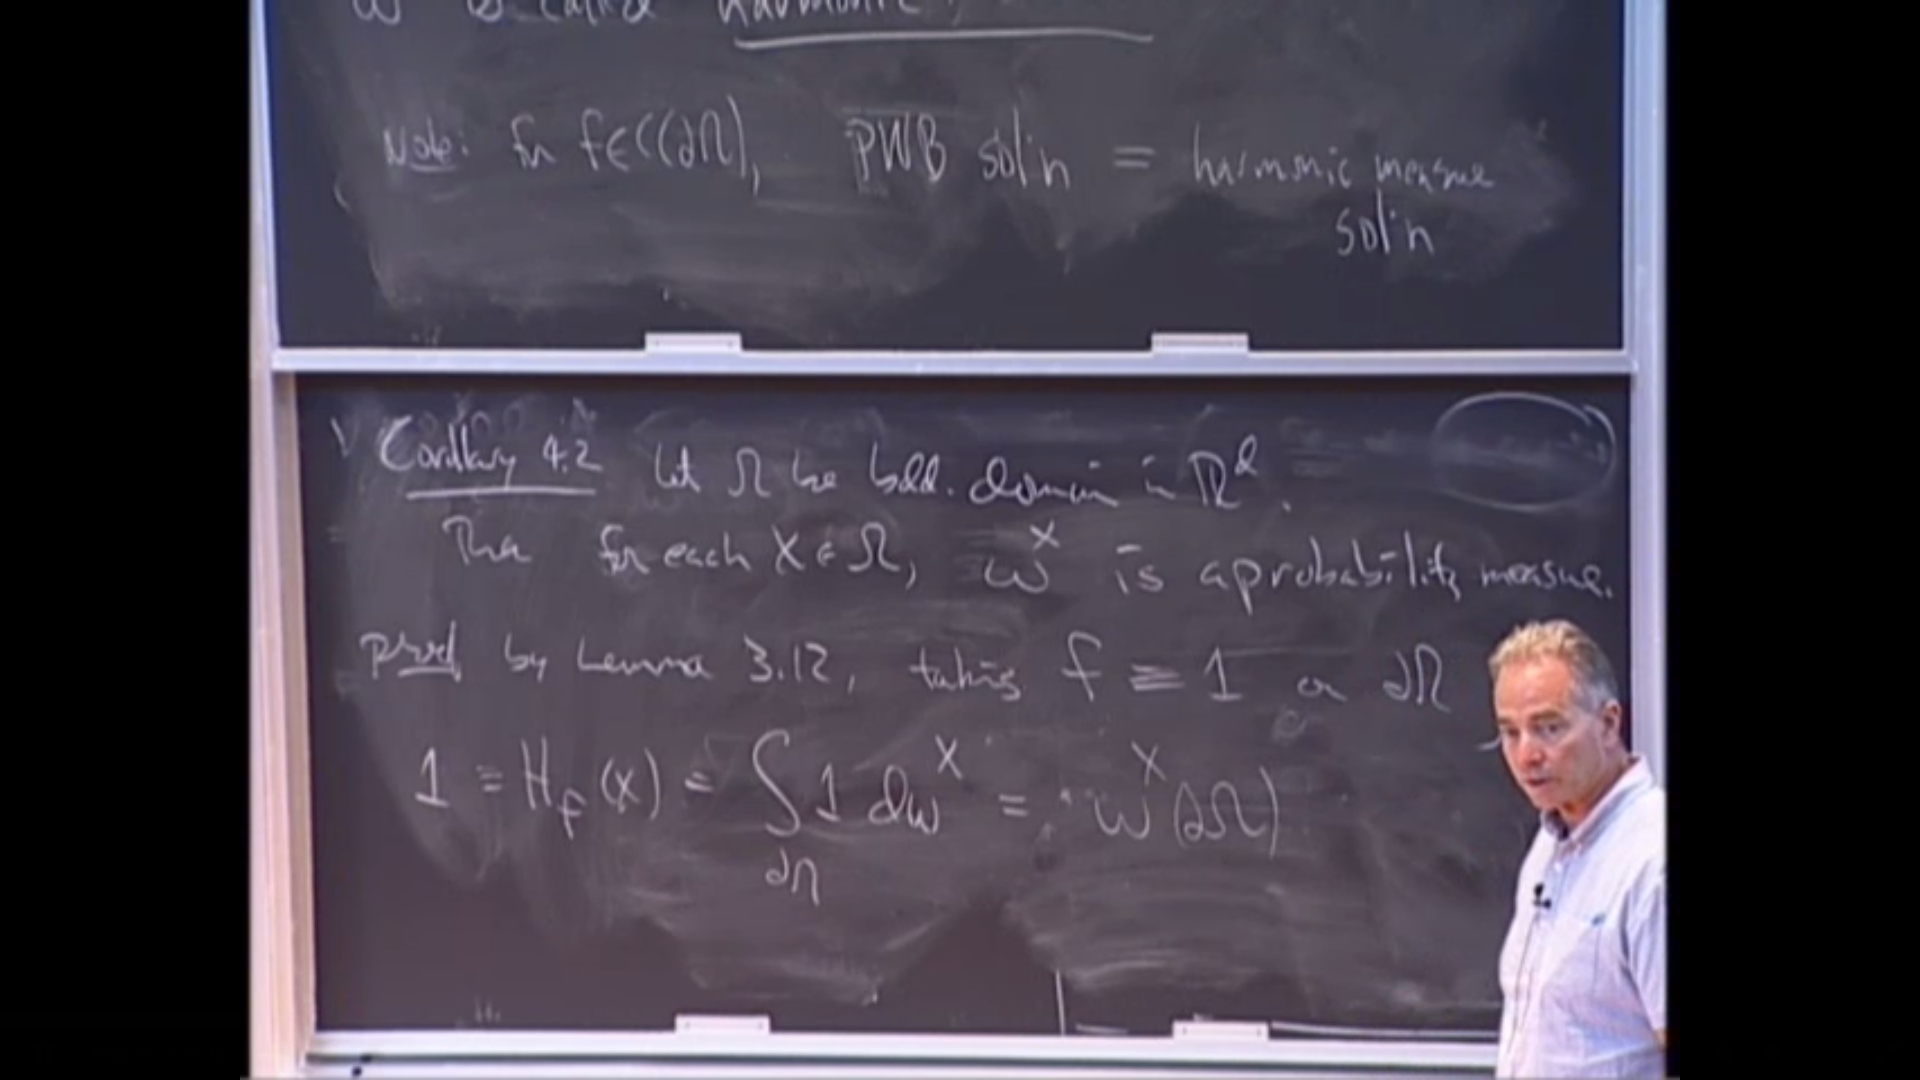 ω is called harmonic
Note: for f∈C(∂Ω), PWB sol'n = harmonic measure
sol'n
Corollary 4.2 Let Ω be bdd. domain in ℝ^d.
Then for each X ∈ Ω, ω^X is a probability measure.
proof by Lemma 3.12, taking f ≡ 1 on ∂Ω
1 = H_f(X) = ∫_∂Ω 1 dω^X = ω^X(∂Ω)